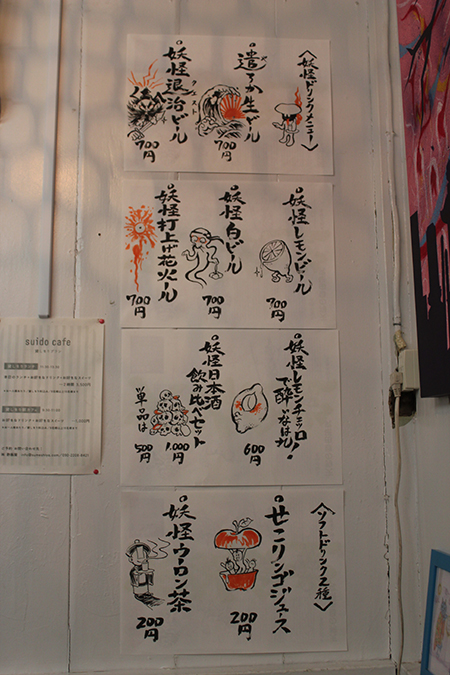 〈妖怪ドリンクメニュー〉
遣ろか生ビール
700円
妖怪退治ビール
700円
妖怪レモンビール
700円
妖怪白ビール
700円
妖怪打上げ花火ール
700円
妖怪レモンチェッロ!
で酔いなはれ
600円
妖怪日本酒
飲み比べセット
1,000円
単品は
500円
〈ソフトドリンク2種〉
せこリンゴジュース
200円
妖怪ウーロン茶
200円
suido cafe